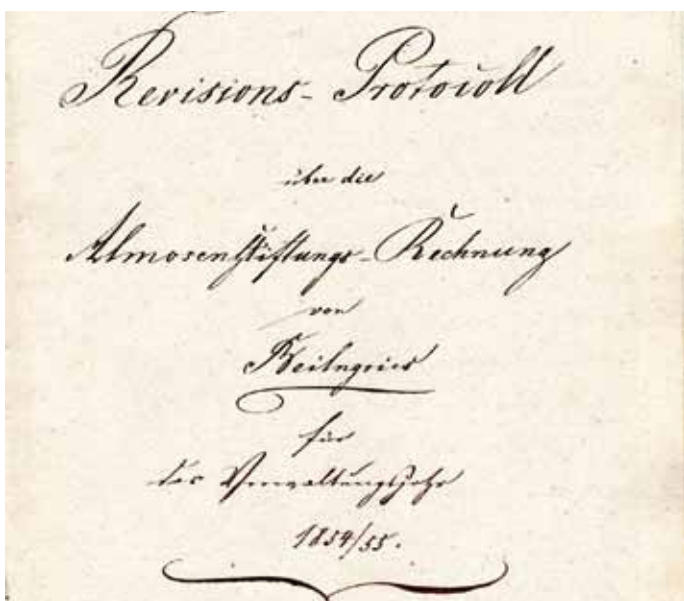 Revisions-Protocoll
über die
Almosenstiftungs-Rechnung
von
Beilngries
für
das Verwaltungsjahr
1854/55.